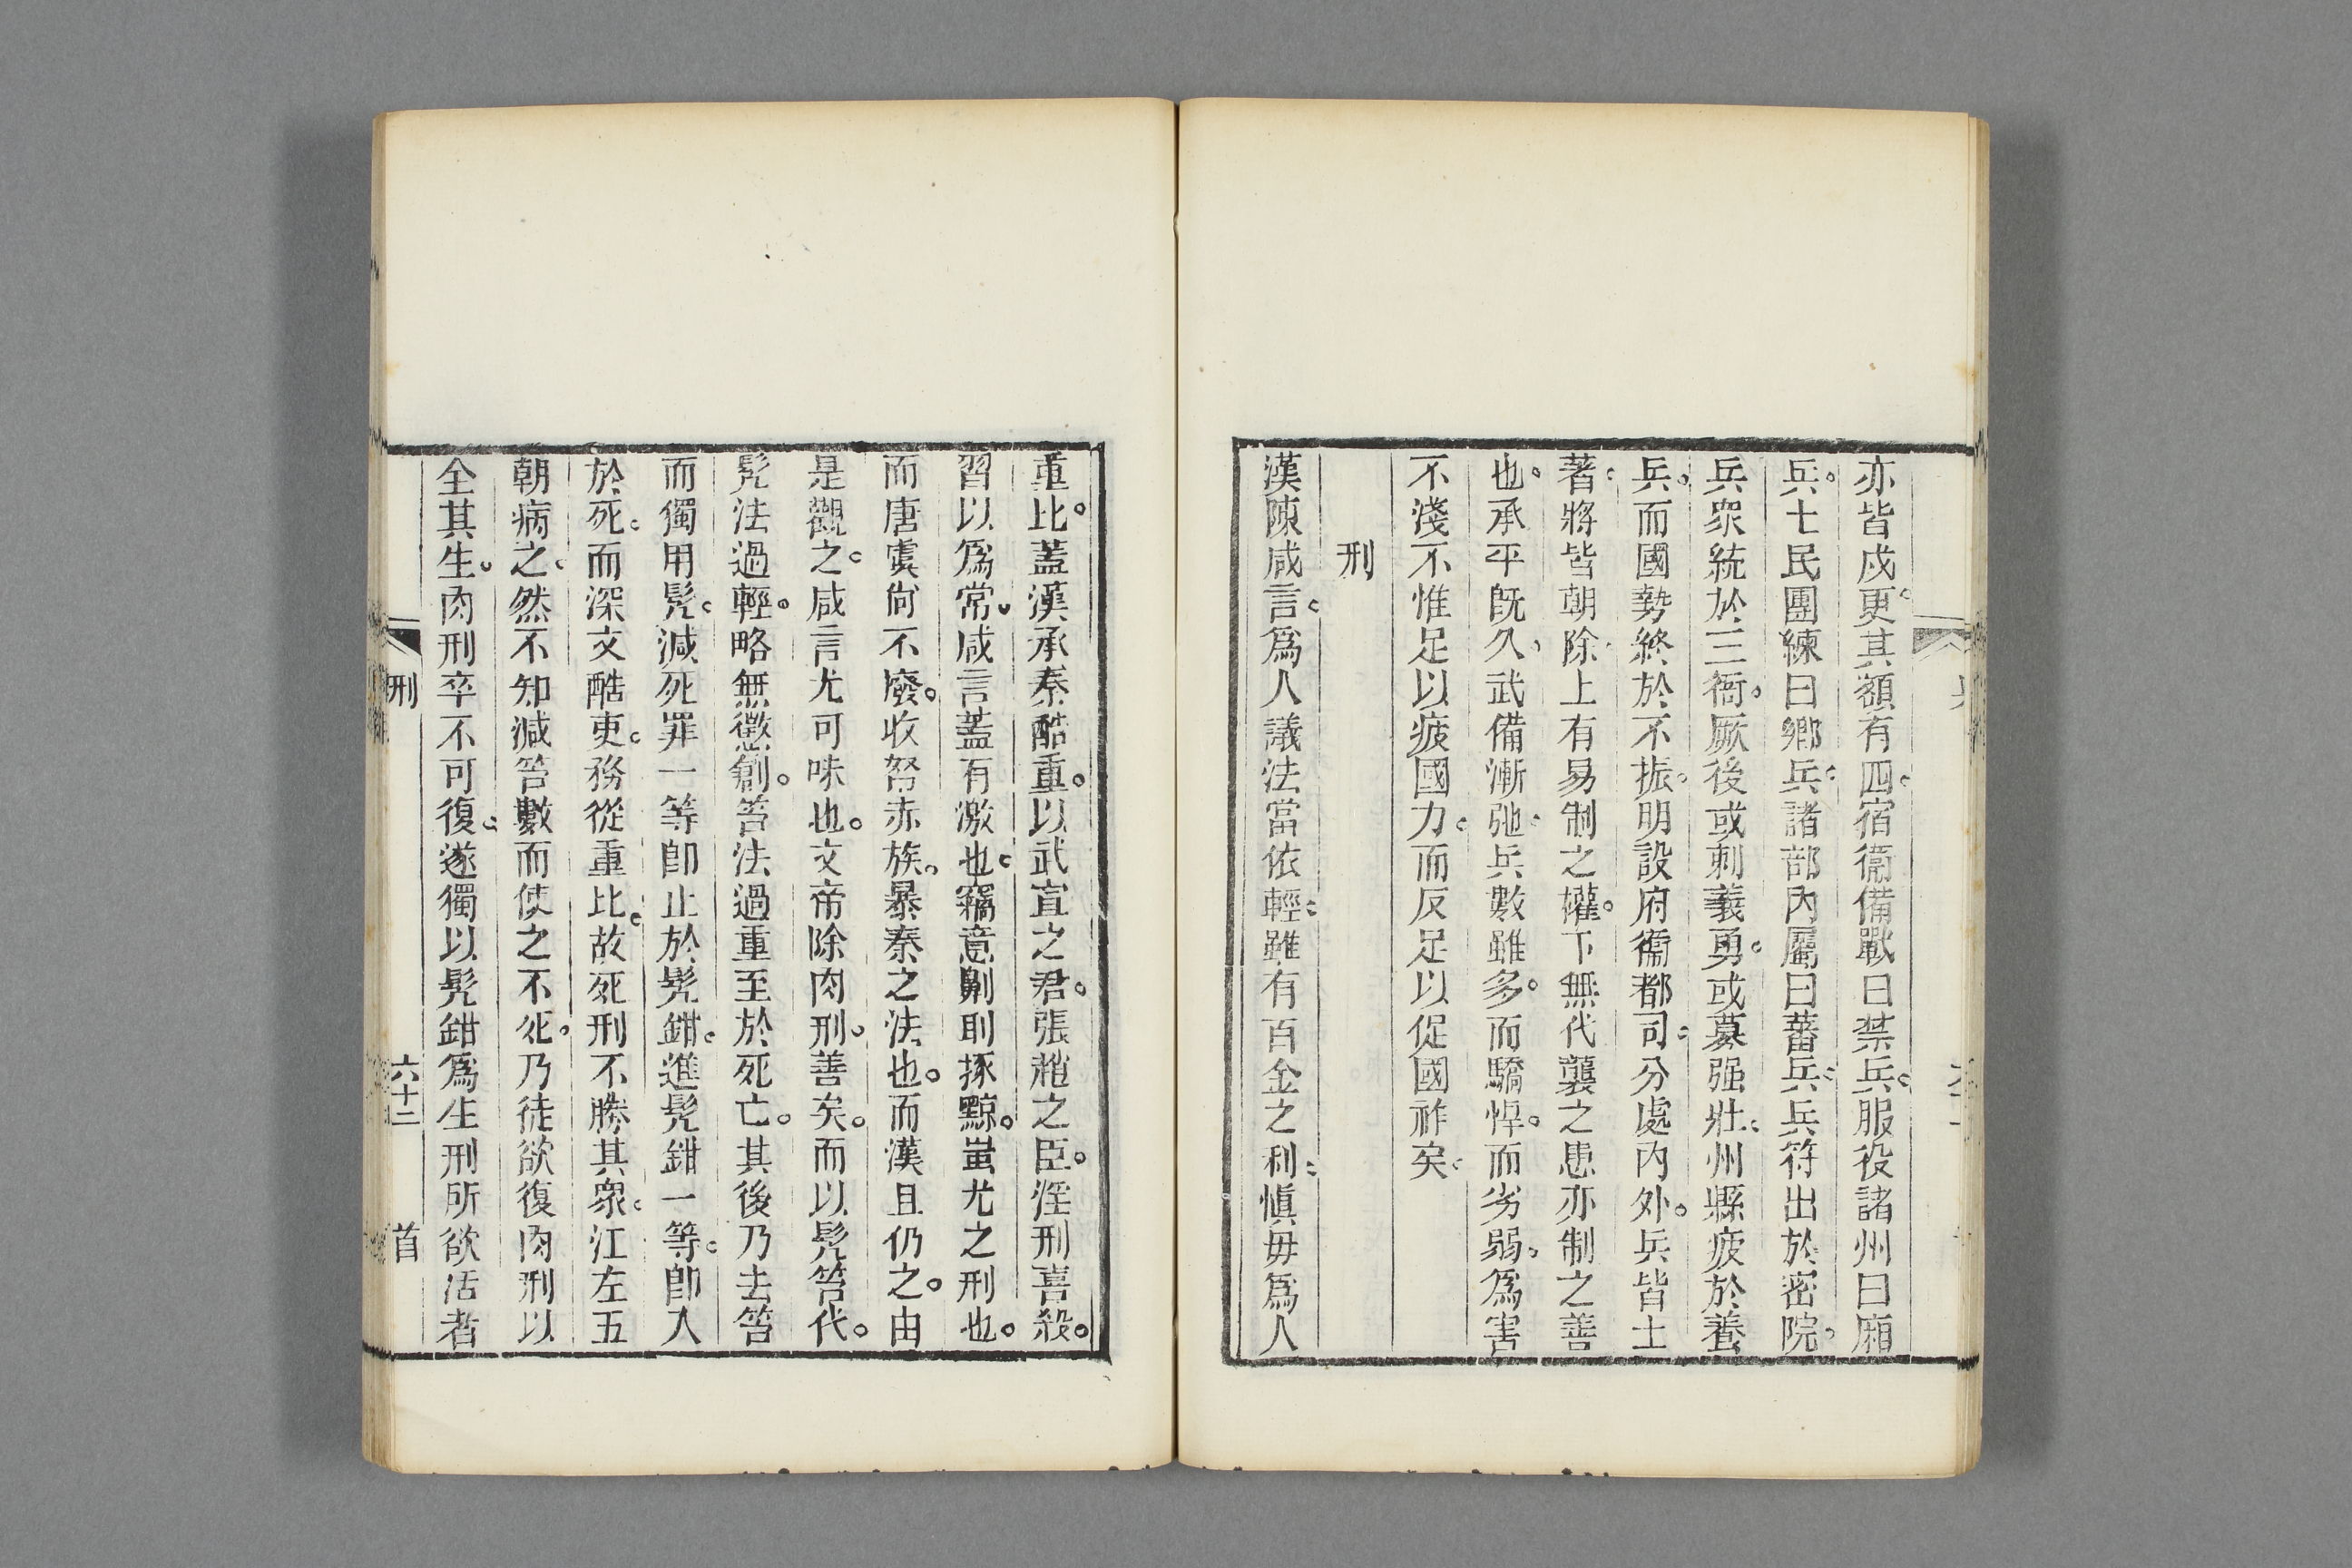 亦皆戍更。其額有四。宿衞備戰曰禁兵。服役諸州曰廂
兵。士民團練曰鄉兵。諸部內屬曰蕃兵。兵符出於密院。
兵衆統於三衙。厥後或刺義勇。或募强壯。州縣疲於養
兵。而國勢終於不振。明設府衞都司。分處內外。兵皆土
著。將皆朝除。上有易制之權。下無代襲之患。亦制之善
也。承平旣久。武備漸弛。兵數雖多。而驕悍。而劣弱。爲害
不淺。不惟足以疲國力。而反足以促國祚矣。
刑
漢陳咸言。爲人議法當依輕。雖有百金之利。愼毋爲人
重比。蓋漢承秦酷重。以武宣之君。張趙之臣。淫刑喜殺。
習以爲常。咸言蓋有激也。竊意劓刵椓黥。蚩尤之刑也。
而唐虞尙不廢。收孥赤族。暴秦之法也。而漢且仍之。由
是觀之。咸言尤可味也。文帝除肉刑。善矣。而以髡笞代。
髡法過輕。略無懲創。笞法過重。至於死亡。其後乃去笞
而獨用髡。減死罪一等。卽止於髡鉗。進髡鉗一等。卽入
於死。而深文酷吏。務從重比。故死刑不勝其衆。江左五
朝病之。然不知減笞數而使之不死。乃徒欲復肉刑以
全其生。肉刑卒不可復。遂獨以髡鉗爲生刑。所欲活者
刑
六十二
首